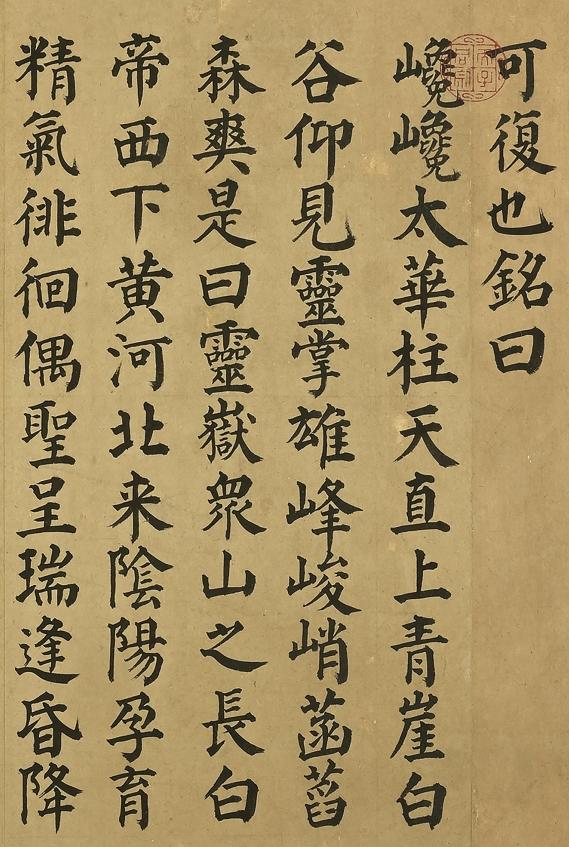 可復也銘曰
巉巉太華柱天直上青崖白
谷仰見靈掌雄峰峻峭菡萏
森爽是曰靈嶽衆山之長白
帝西下黄河北来陰陽孕育
精氣徘徊偶聖呈瑞逢昏降